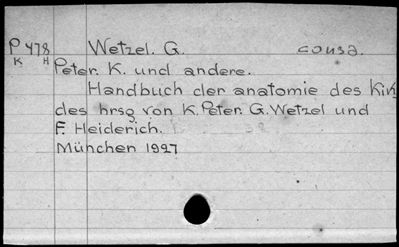 P 478 Wetzel. G. cousa.
K H
Peter. K. und andere.
Handbuch der anatomie des Kin
des hrsg von K. Peter. G. Wetzel und
F. Heiderich.
München 1927